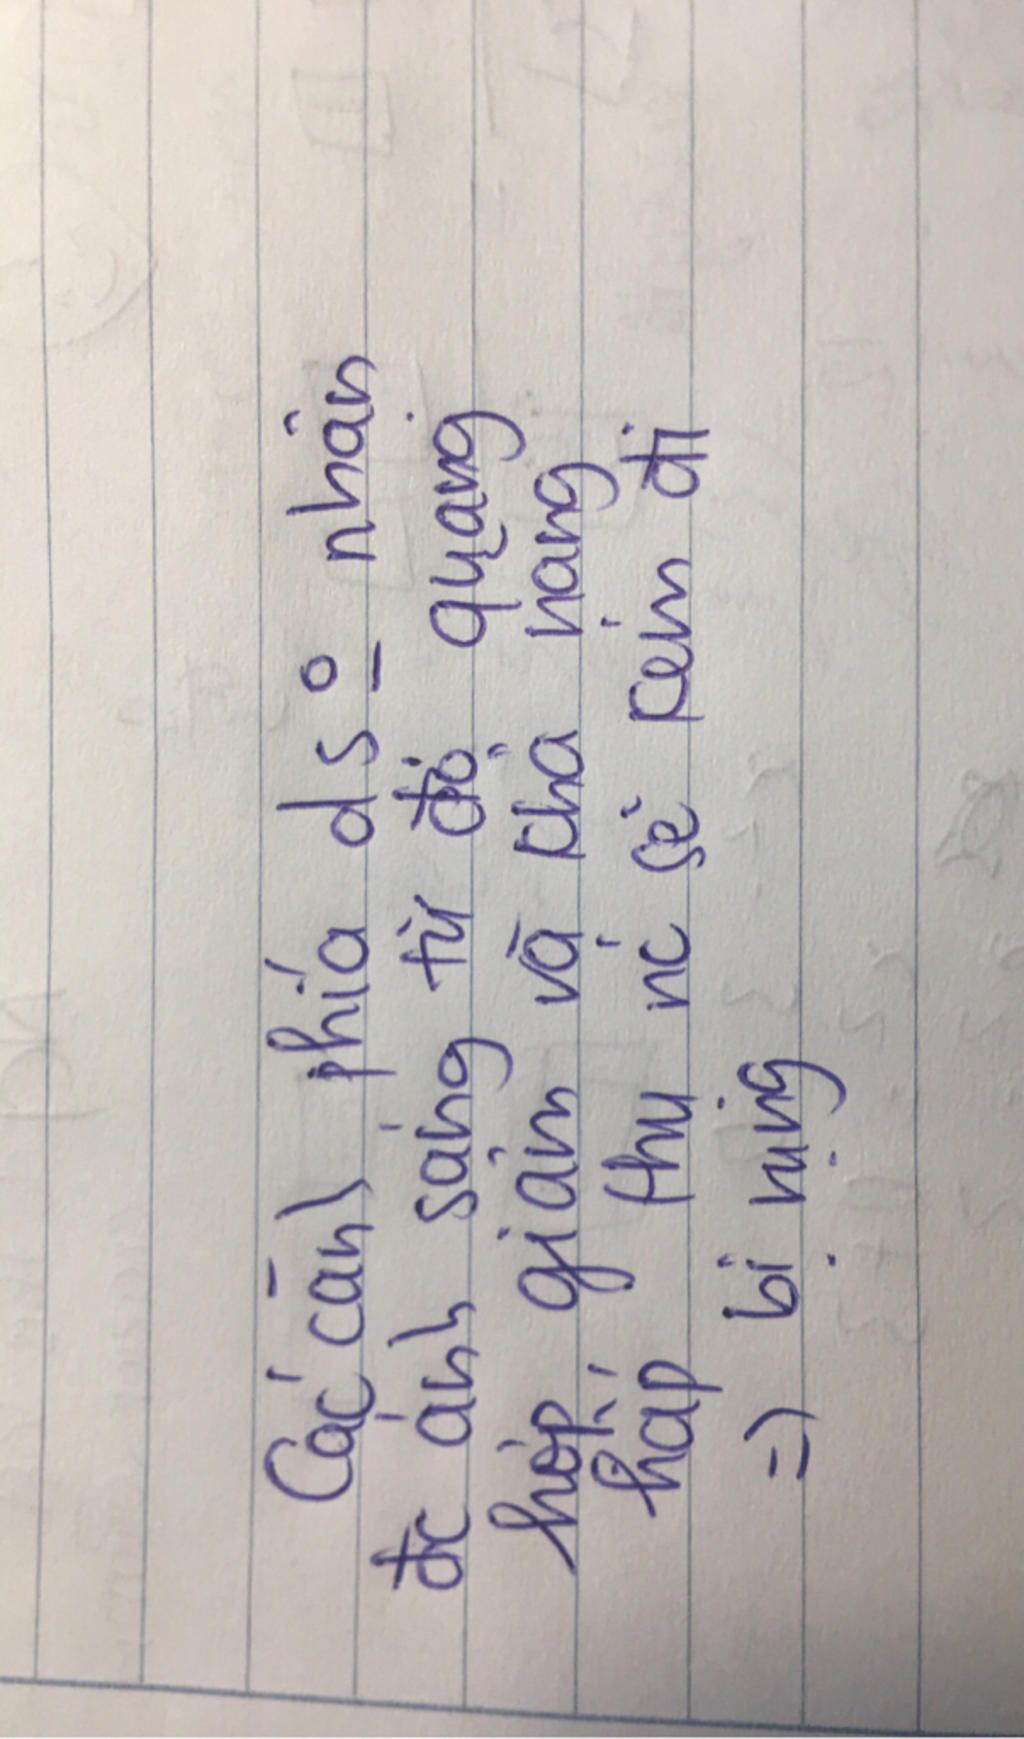 Các cành phía dưới ko nhận
đc ánh sáng từ đó quang
hợp giảm và khả năng
hấp thụ nc sẽ kém đi
=) bị rụng